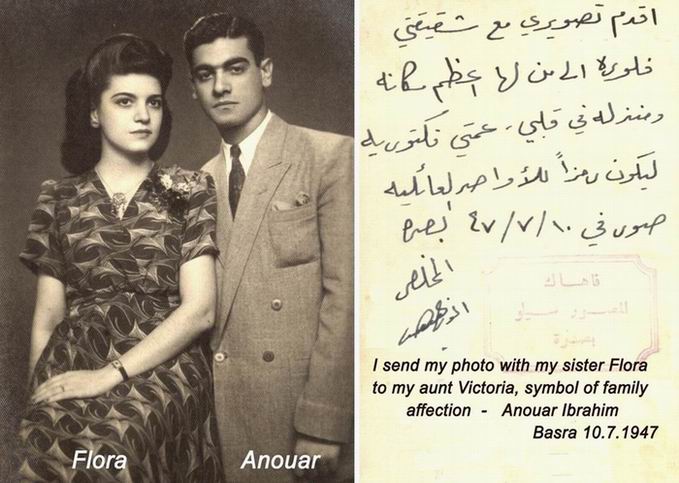 Flora
Anouar
اقدم تصويري مع شقيقتي
فلوره الى من لها اعظم مكانه
ومنزله في قلبي - عمتي فكتوريه
ليكون رمزاً للأواصر العائليه
صور في ١٠/٧/٤٧ بصره
المخلص
فاهاك
المصور سيلو
بصرة
I send my photo with my sister Flora
to my aunt Victoria, symbol of family
affection - Anouar Ibrahim
Basra 10.7.1947